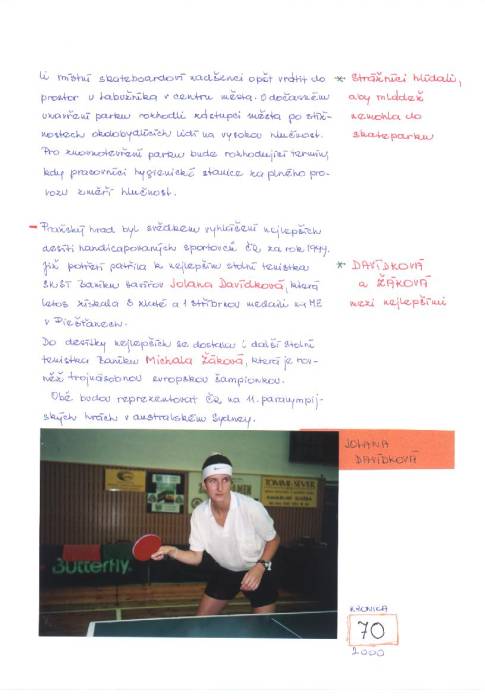 li místní skateboardoví nadšenci opět vrátit do
prostor u Labužníka v centru města. O dočasném
uzavření parku rozhodli zástupci města po stíž-
nostech okolobydlících lidí na vysokou hlučnost.
Pro znovuotevření parku bude rozhodující termín,
kdy pracovníci hygienické stanice za plného pro-
vozu změří hlučnost.
* Strážníci hlídali,
aby mládež
nemohla do
skateparku
- Pražský hrad byl svědkem vyhlášení nejlepších
desíti handicapovaných sportovců ČR za rok 1999.
Již potřetí patřila k nejlepším stolní tenistka
Baníku Havířov Jolana Davídková, která
letos získala 3 zlaté a 1 stříbrnou medaili na ME
v Piešťanech.
Do desítky nejlepších se dostala i další stolní
tenistka Baníku Michala Žáková, která je rov-
něž trojnásobnou evropskou šampionkou.
Obě budou reprezentovat ČR na 11. paralympij-
ských hrách v australském Sydney.
* DAVÍDKOVÁ
a ŽÁKOVÁ
mezi nejlepšími
JOLANA
DAVÍDKOVÁ
TOMMI-SEVER
Butterfly
KRONIKA
70
2000